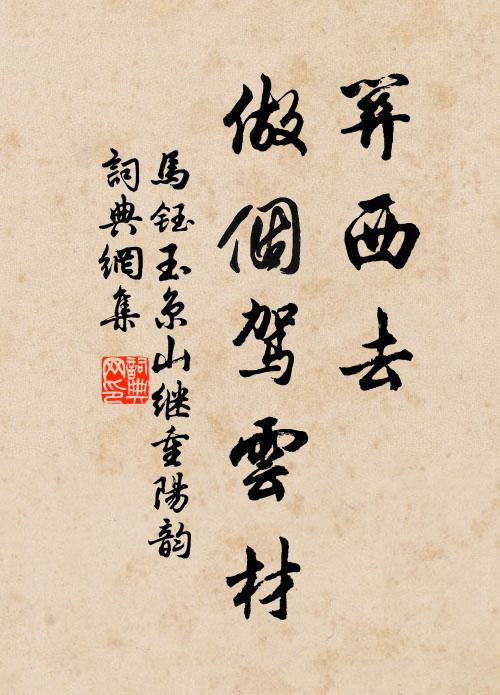 西去
做個駕雲材
馬鈺玉京山继重陽韵
詞典網集
詞典网印